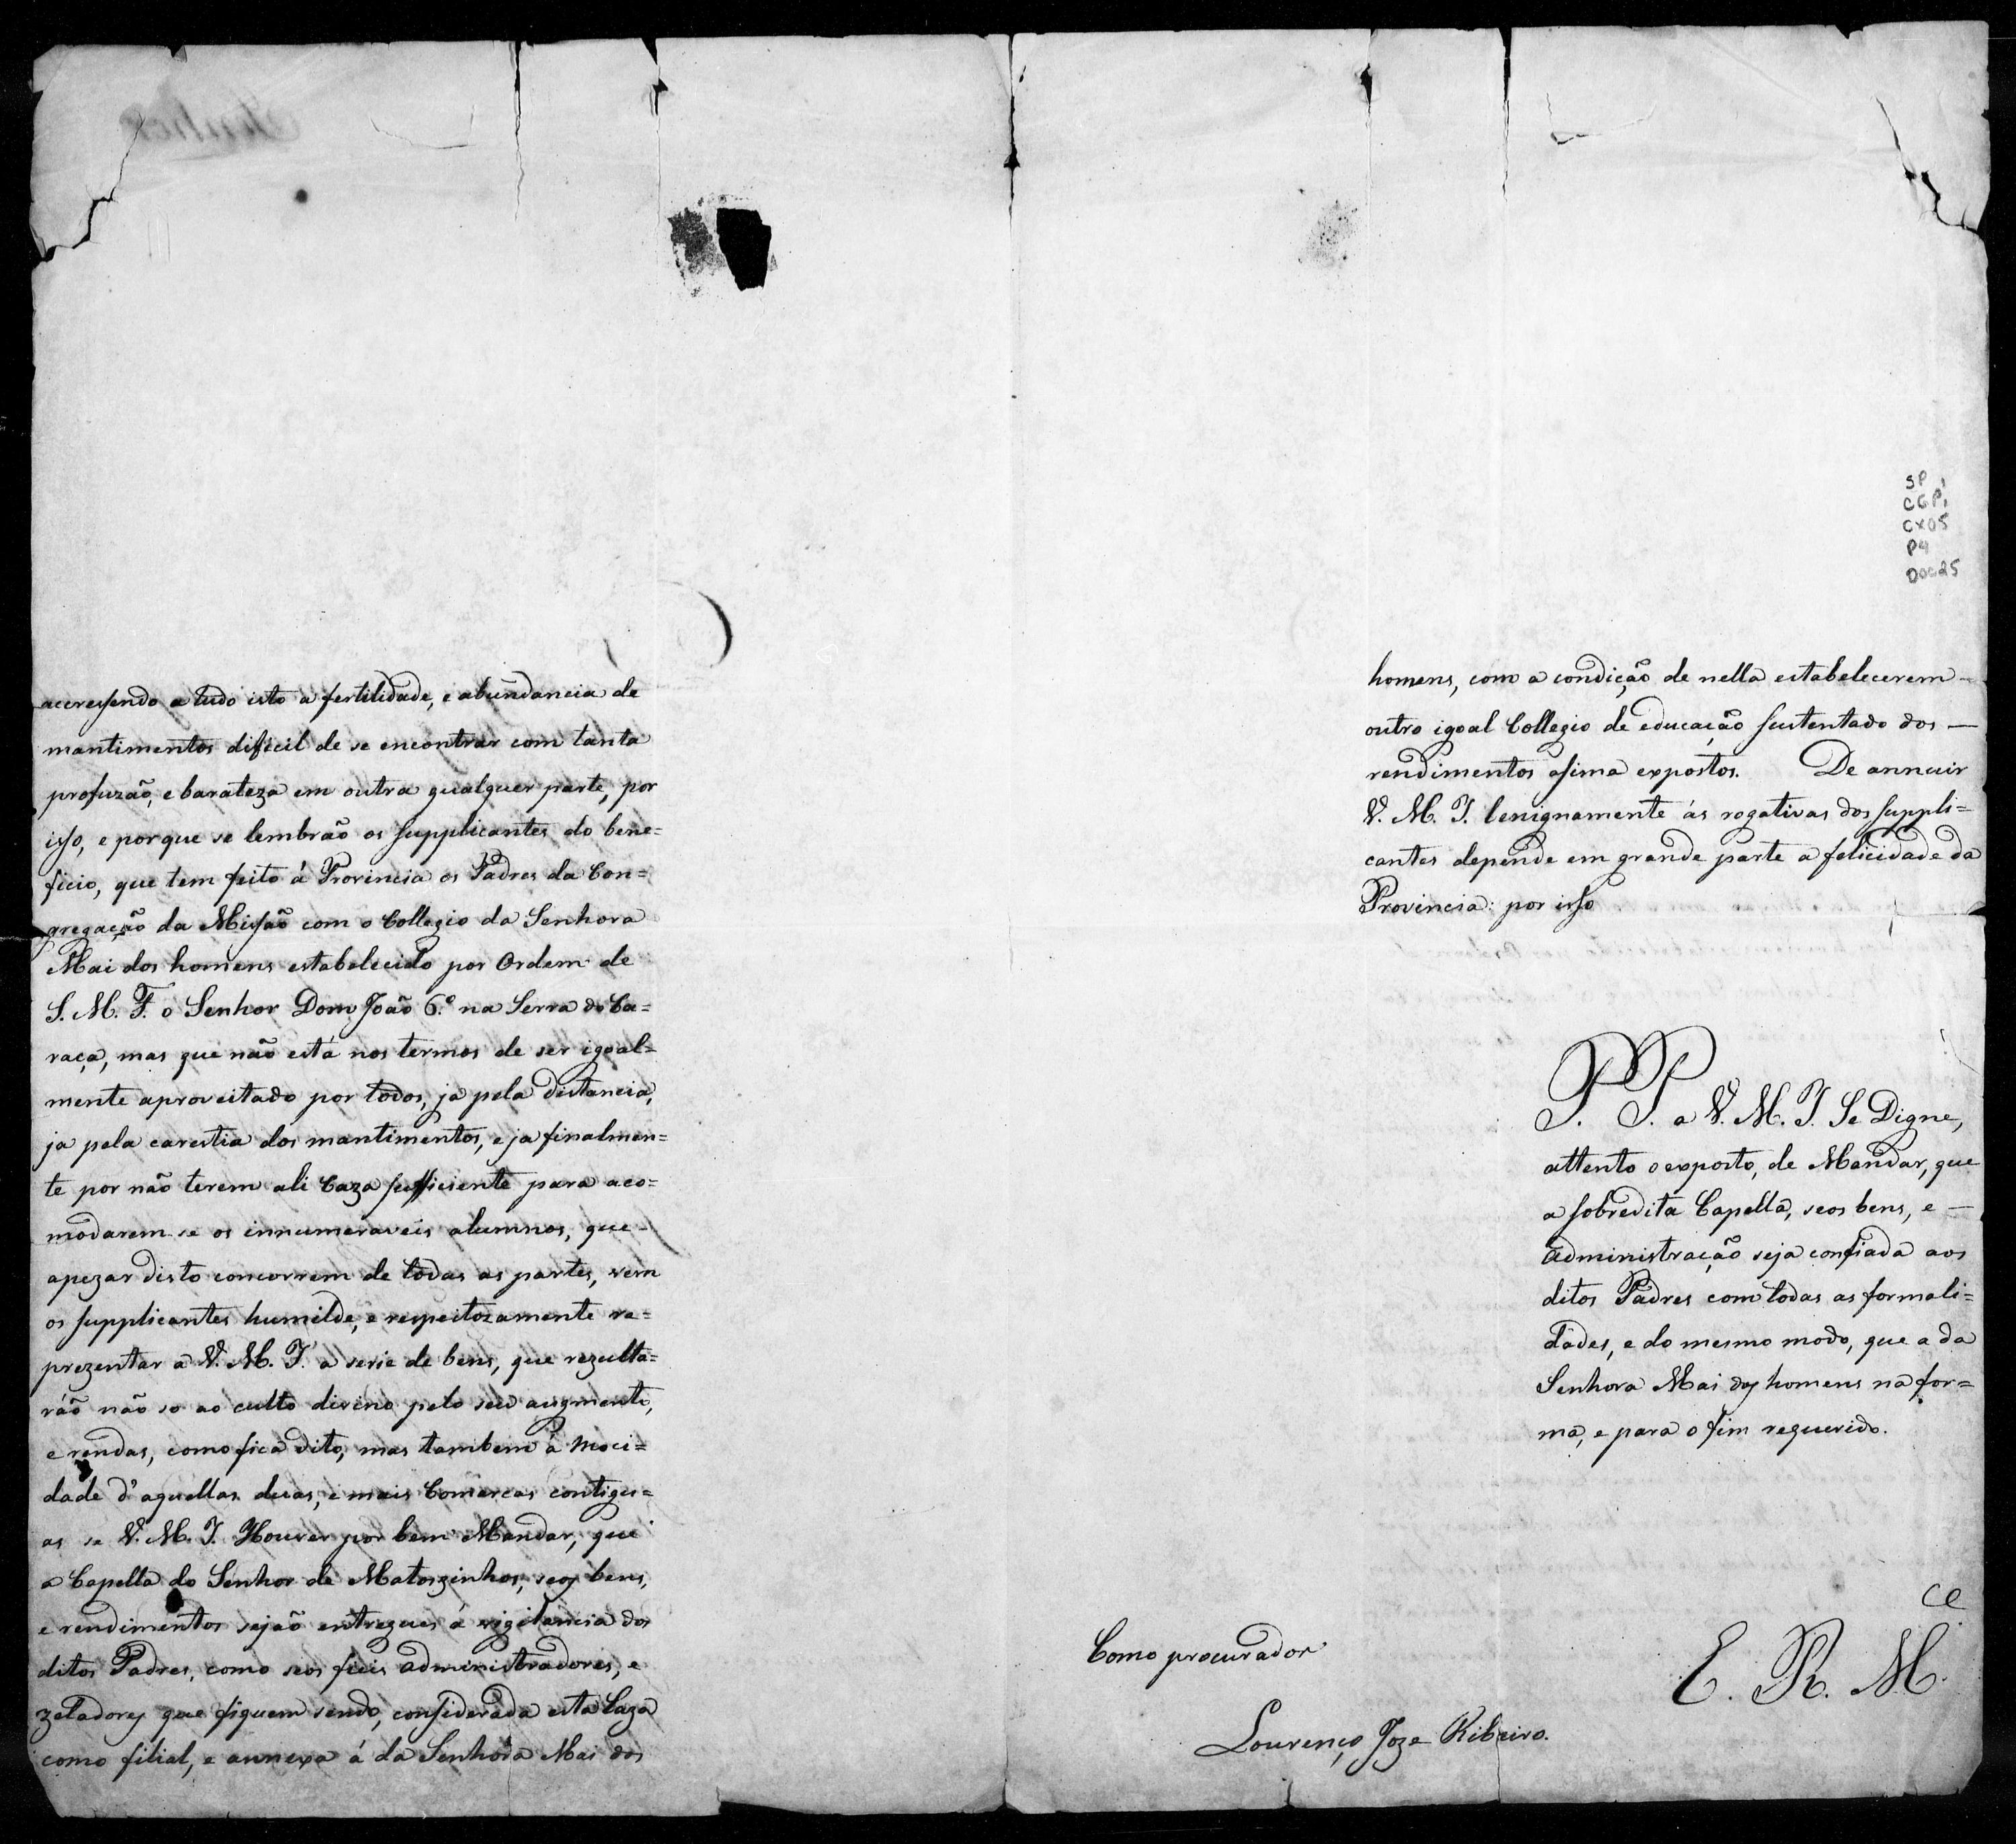 accressendo a tudo isto a fertilidade, e abundancia de
mantimentos dificil de se encontrar com tanta
profuzão, e barateza em outra qualquer parte, por
isso, e porque se lembrão os supplicantes do bene=
ficio, que tem feito á Provincia os Padres da Con=
gregação da Missão com o Collegio da Senhora
Mai dos homens estabelecido por Ordem de
S. M. F. o Senhor Dom João 6.º na Serra do Ca=
raça, mas que não está nos termos de ser igoal=
mente aproveitado por todos, ja pela distancia,
ja pela carestia dos mantimentos, e ja finalmen=
te por não terem ali Caza sufficiente para aco=
modarem se os innumeraveis alumnos, que
apezar disto concorrem de todas as partes, vem
os supplicantes humilde, e respeitozamente re=
prezentar a V. M. I. a serie de bens, que rezulta=
rão não so ao culto divino pelo seu augmento,
e rendas, como fica dito, mas tambem á moci=
dade d'aquellas duas, e mais Comarcas contigu=
as se V. M. I. Houver por bem Mandar, que
a Capella do Senhor de Matozinhos, seos bens,
e rendimentos sejão entregues á vigilancia dos
ditos Padres, como seos fieis administradores, e
zeladores que fiquem sendo, considerada esta Caza
como filial, e annexa á da Senhora Mai dos
SP
CGP1
CX05
P4
DOC25
homens, com a condição de nella estabelecerem
outro igoal Collegio de educação sustentado dos —
rendimentos asima expostos. De annuir
V. M. I. benignamente ás rogativas dos suppli=
cantes depende em grande parte a felicidade da
Provincia: por isso
P. P. a V. M. I. Se Digne,
attento o exposto, de Mandar, que
a sobredita Capella, seos bens, e —
administração seja confiada aos
ditos Padres com todas as formali=
dades, e do mesmo modo, que a da
Senhora Mai dos homens na for=
ma, e para o fim requerido.
E. R. M.ce
Como procurador
Lourenço Joze Ribeiro.